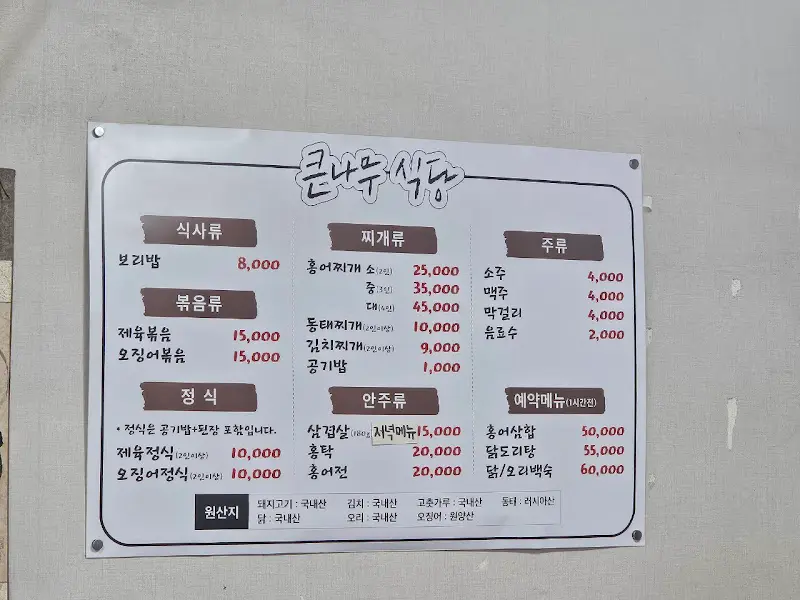 큰나무 식당
식사류
보리밥 8,000
볶음류
제육볶음 15,000
오징어볶음 15,000
정 식
• 정식은 공기밥+된장 포함입니다.
제육정식(2인이상) 10,000
오징어정식(2인이상) 10,000
찌개류
홍어찌개 소(2인) 25,000
중(3인) 35,000
대(4인) 45,000
동태찌개(2인이상) 10,000
김치찌개(2인이상) 9,000
공기밥 1,000
안주류
삼겹살 저녁메뉴 15,000
홍탁 20,000
홍어전 20,000
주류
소주 4,000
맥주 4,000
막걸리 4,000
음료수 2,000
예약메뉴(1시간전)
홍어삼합 50,000
닭도리탕 55,000
닭/오리백숙 60,000
원산지
돼지고기 : 국내산 김치 : 국내산 고춧가루 : 국내산 동태 : 러시아산
닭 : 국내산 오리 : 국내산 오징어 : 원양산